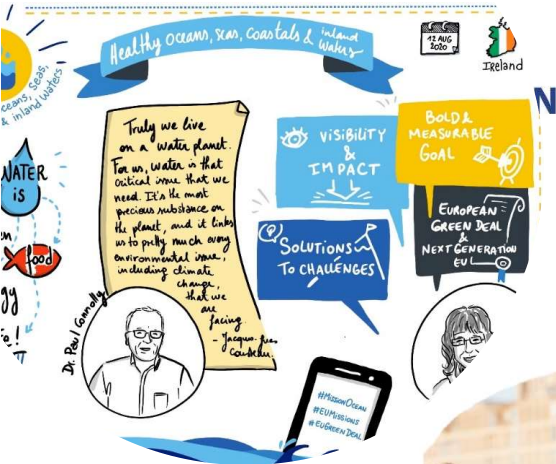 Healthy Oceans, seas, coastals & inland waters
12 AUG
2020
IRELAND
Oceans, Seas,
& inland Waters
WATER
is
food
Truly we live
on a water planet.
For us, water is that
critical issue that we
need. It's the most
precious substance on
the planet, and it links
us to pretty much every
environmental issue,
including climate
change,
that we
are
facing
- Jacques-Yves
Cousteau.
Dr. Paul Connolly
VISIBILITY
&
IMPACT
BOLD &
MEASURABLE
GOAL
SOLUTIONS
TO CHALLENGES
EUROPEAN
GREEN DEAL
&
NEXT GENERATION
EU
#MISSIONOCEAN
#EUMISSIONS
#EUGREENDEAL
N